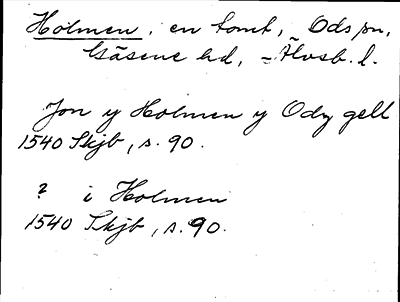 Holmen, en tomt, Ods sn,
Gäsene hd, Älvsb. l.
Jon y Holmen y Ody gell
1540 Skjb, s. 90.
? i Holmen
1540 Skjb, s. 90.